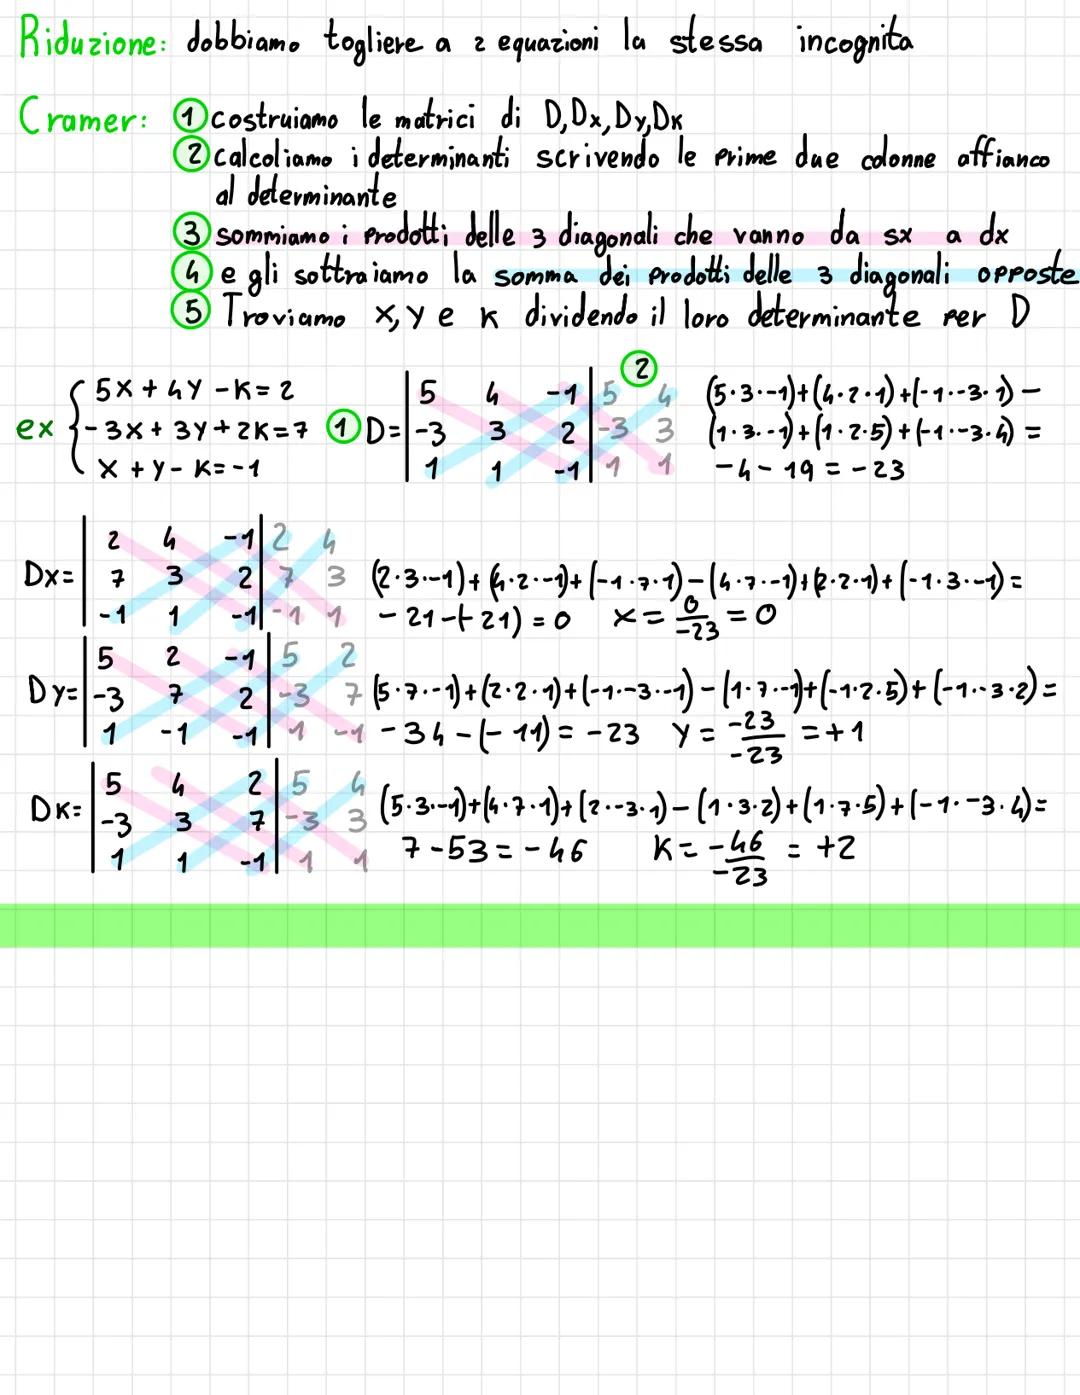 Riduzione: dobbiamo togliere a 2 equazioni la stessa incognita
Cramer: ① costruiamo le matrici di D,Dx,Dy,Dk
② calcoliamo i determinanti scrivendo le prime due colonne affianco
al determinante
③ sommiamo i prodotti delle 3 diagonali che vanno da sx a dx
④ e gli sottraiamo la somma dei prodotti delle 3 diagonali opposte
⑤ Troviamo x, y e k dividendo il loro determinante per D
②
5x + 4y - k = 2 | 5 4 -1 | 5 4 (5·3·-1)+(4·2·1)+(-1·-3·1) -
ex { -3x + 3y + 2k = 7 ① D= | -3 3 2 | -3 3 (1·3·-1)+(1·2·5)+(-1·-3·4) =
x + y - k = -1 | 1 1 -1 | 1 1 -4 - 19 = -23
| 2 4 -1 | 2 4
Dx= | 7 3 2 | 7 3 (2·3·-1)+(4·2·-1)+(-1·7·1)-(4·7·-1)+(2·2·1)+(-1·3·-1) =
| -1 1 -1 | -1 1 -21-(-21) = 0 x = 0/-23 = 0
| 5 2 -1 | 5 2
Dy= | -3 7 2 | -3 7 (5·7·-1)+(2·2·1)+(-1·-3·-1)-(1·7·-1)+(-1·2·5)+(-1·-3·2) =
| 1 -1 -1 | 1 -1 -34-(-11) = -23 y = -23/-23 = +1
| 5 4 2 | 5 4
Dk= | -3 3 7 | -3 3 (5·3·-1)+(4·7·1)+(2·-3·1)-(1·3·2)+(1·7·5)+(-1·-3·4) =
| 1 1 -1 | 1 1 7-53 = -46 k = -46/-23 = +2